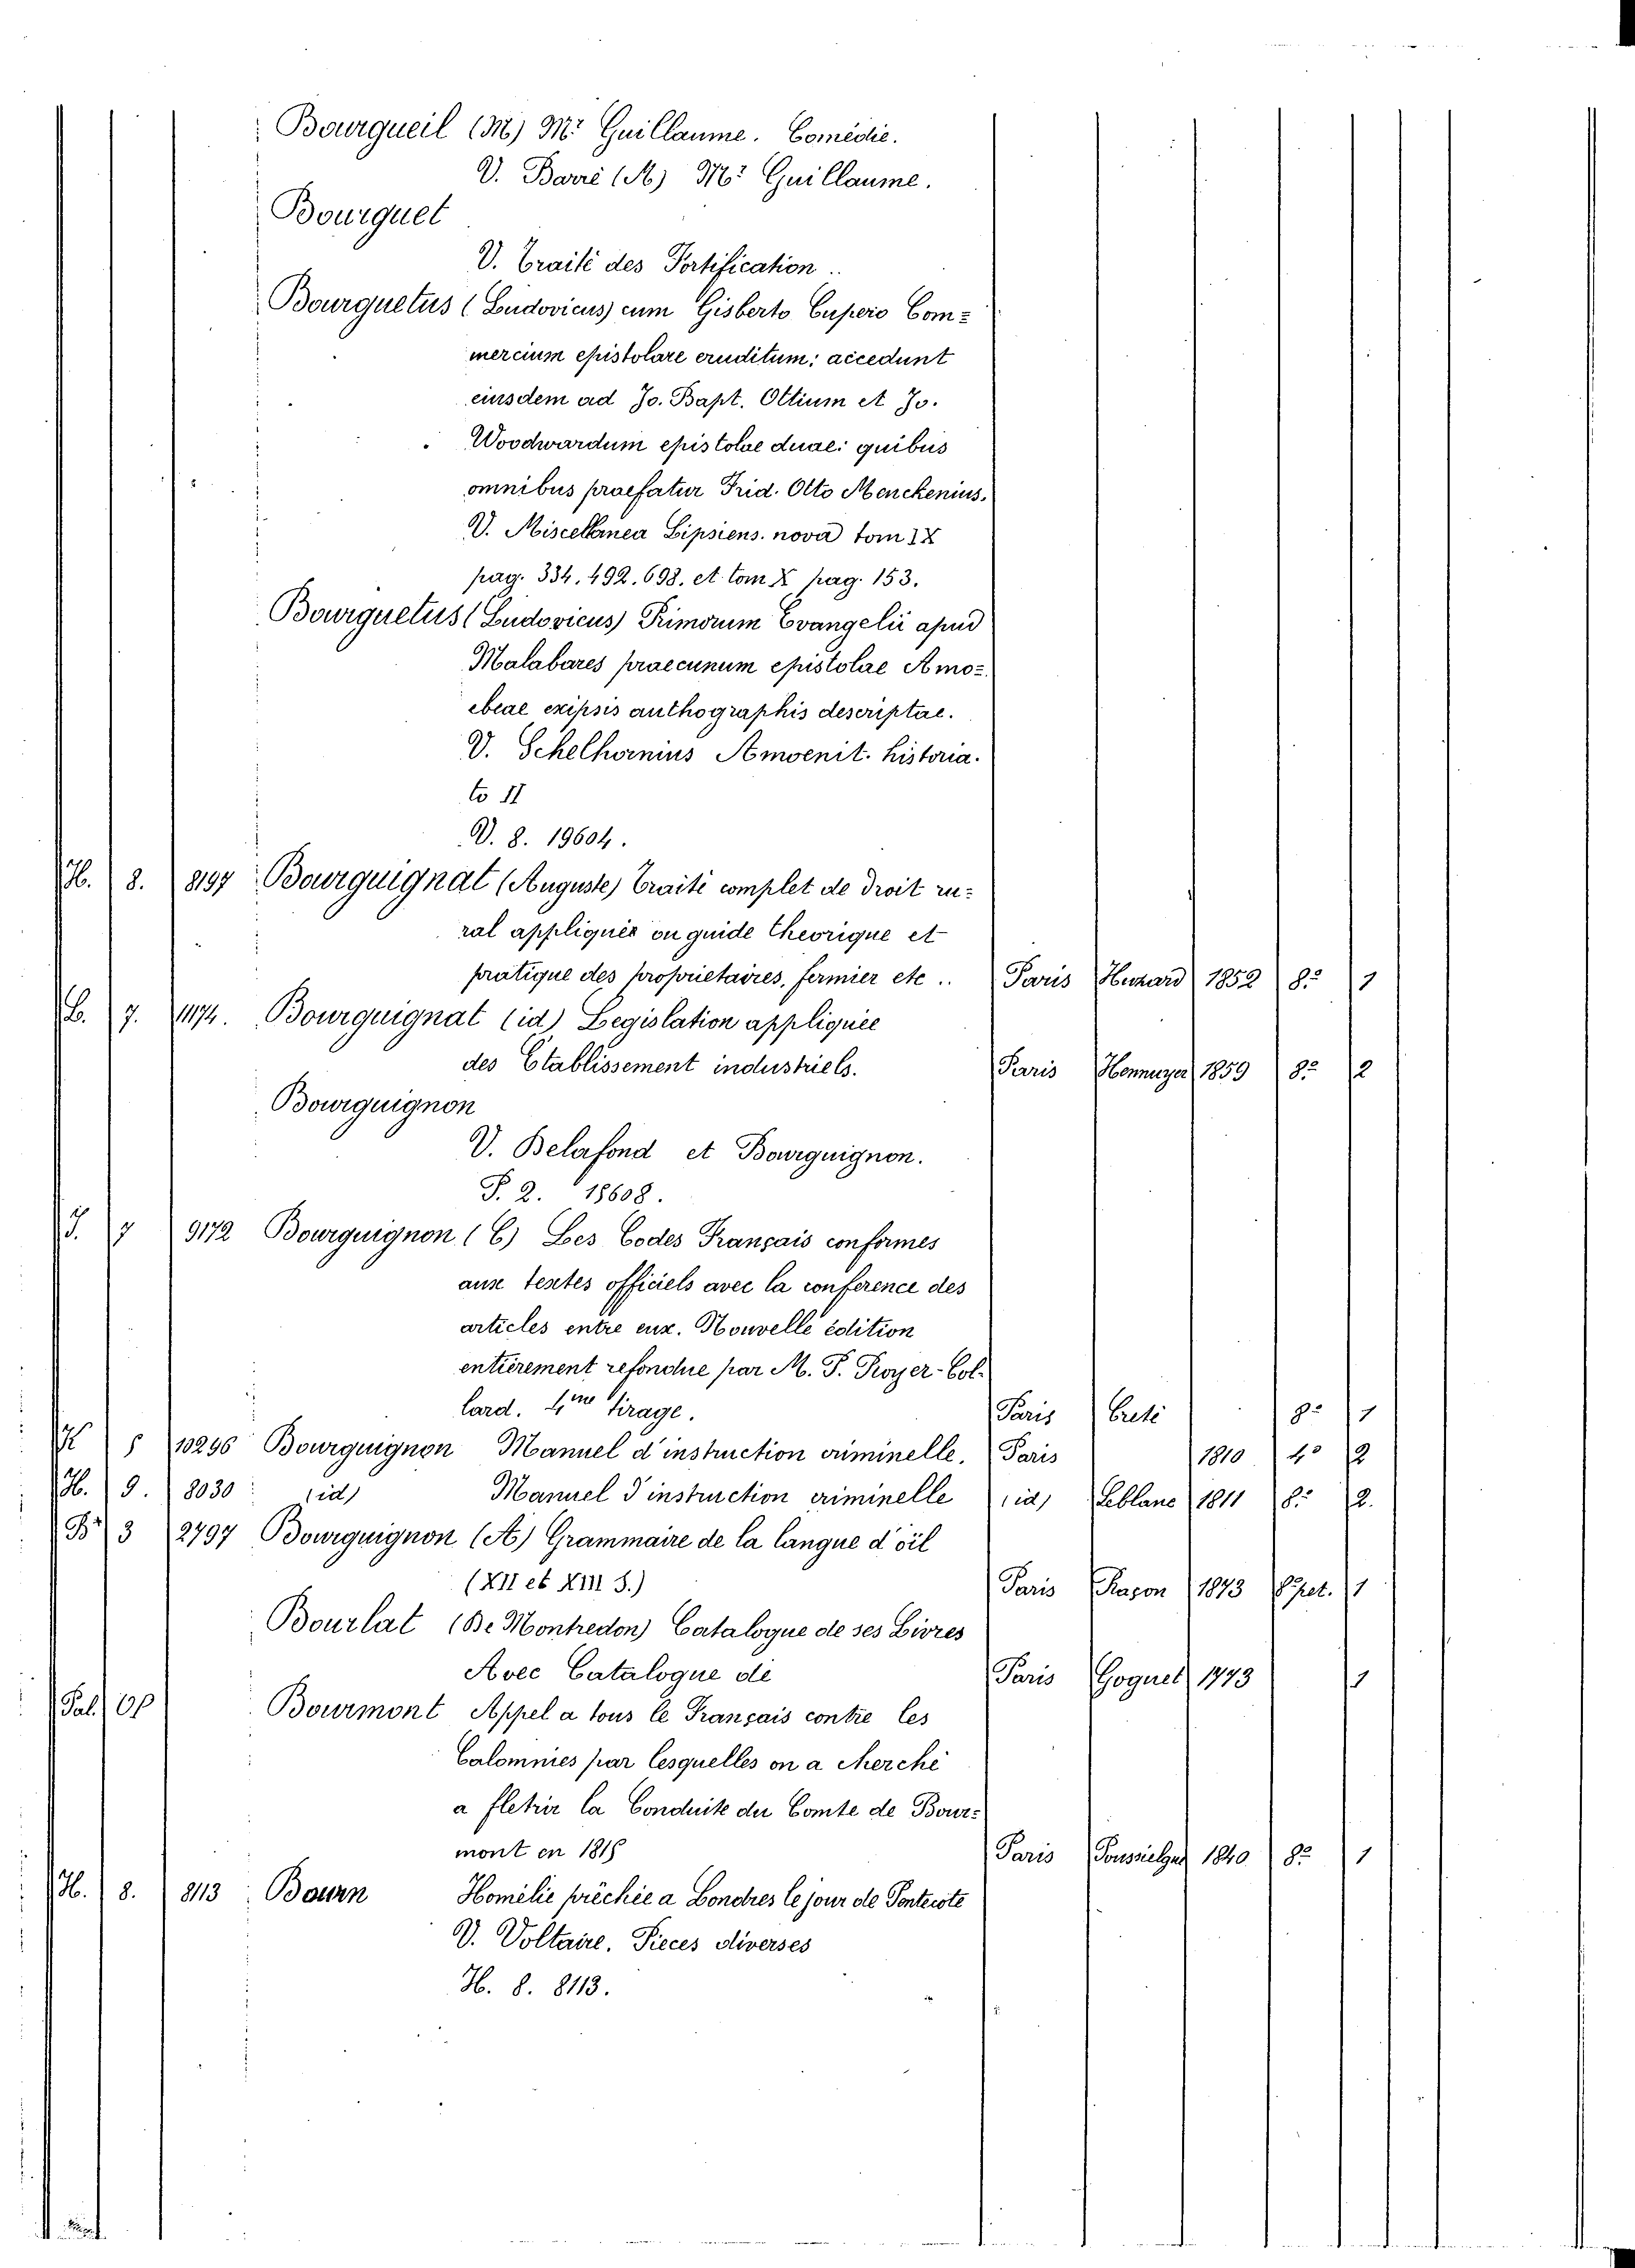 Bourgueil (M) Mr Guillaume. Comédie.
V. Barré (M) Mr Guillaume.
Bourguet
V. Traité des Fortification..
Bourguetus (Ludovicus) cum Gisberto Cupero Com=
mercium epistolare eruditum; accedunt
eiusdem ad Jo. Bapt. Ottium et Jo.
Woodwardum epistolae duae: quibus
omnibus praefatur Frid. Otto Menckenius.
V. Miscellanea Lipsiens. nova tom IX
pag. 334. 492. 698. et tom X pag. 153.
Bourguetus (Ludovicus) Primorum Evangelii apud
Malabares praeconum epistolae Amo=
ebeae exipsis authographis descriptae.
V. Schelhornius Amoenit. historia.
to II
V. 8. 19604.
H. 8. 8197 Bourguignat (Auguste) Traité complet de droit ru=
ral appliqués ou guide theorique et
pratique des proprietaires, fermier etc.. Paris Huzard 1852 8º 1
B. 7. 11174. Bourguignat (id) Legislation appliquée
des Etablissement industriels. Paris Hennuyer 1859 8º 2
Bourguignon
V. Belafond et Bourguignon.
P. 2. 18608.
J. 7 9172 Bourguignon (C) Les Codes Français conformes
aux textes officiels avec la conference des
articles entre eux. Nouvelle édition
entièrement refondue par M. P. Royer-Col-
lard. 4me tirage. Paris Creté 8º 1
H 5 10296 Bourguignon Manuel d'instruction criminelle. Paris 1810 4º 2
H. 9. 8030 (id) Manuel d'instruction criminelle (id) Leblanc 1811 8º 2.
Br 3 2797 Bourguignon (A) Grammaire de la langue d'oil
(XII et XIII S.) Paris Raçon 1873 8º pet. 1
Bourlat (De Montredon) Catalogue de ses Livres
Avec Catalogue de Paris Goguet 1773 1
Pal. OP Bourmont Appel a tous le Français contre les
Calomnies par lesquelles on a cherché
a fletrir la Conduite du Comte de Bour=
mont en 1815 Paris Poussielgue 1840 8º 1
H. 8. 8113 Bourn Homélie prêchée a Londres le jour de Pentecote
V. Voltaire. Pieces diverses
H. 8. 8113.